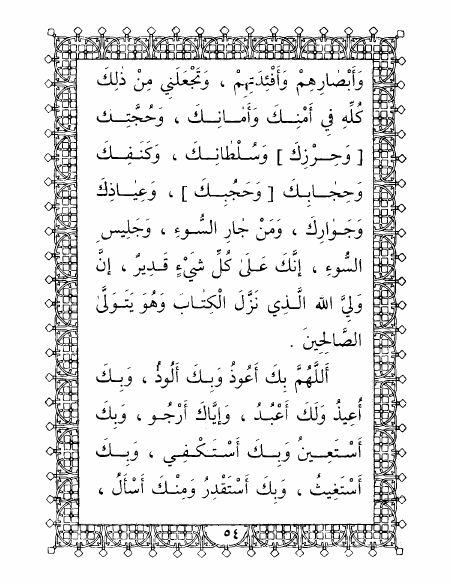 وَأَبْصَارِهِمْ وَأَفْئِدَتِهِمْ ، وَتَجْعَلَنِي مِنْ ذٰلِكَ
كُلِّهِ فِي أَمْنِكَ وَأَمَانِكَ ، وَحُجَّتِكَ
[ وَحِرْزِكَ ] وَسُلْطَانِكَ ، وَكَنَفِكَ
وَحِجَابِكَ [ وَحَجْبِكَ ] ، وَعِيَاذِكَ
وَجِوَارِكَ ، وَمَنْ جَارِ السُّوءِ ، وَجَلِيسِ
السُّوءِ ، إِنَّكَ عَلَىٰ كُلِّ شَيْءٍ قَدِيرٌ ، إِنَّ
وَلِيَّ الله الَّذِي نَزَّلَ الْكِتَابَ وَهُوَ يَتَوَلَّىٰ
الصَّالِحِينَ .
أَللَّهُمَّ بِكَ أَعُوذُ وَبِكَ أَلُوذُ ، وَبِكَ
أُعِيذُ وَلَكَ أَعْبُدُ ، وَإِيَّاكَ أَرْجُو ، وَبِكَ
أَسْتَعِينُ وَبِكَ أَسْتَكْفِي ، وَبِكَ
أَسْتَغِيثُ ، وَبِكَ أَسْتَقْدِرُ وَمِنْكَ أَسْأَلُ ،
٥٤